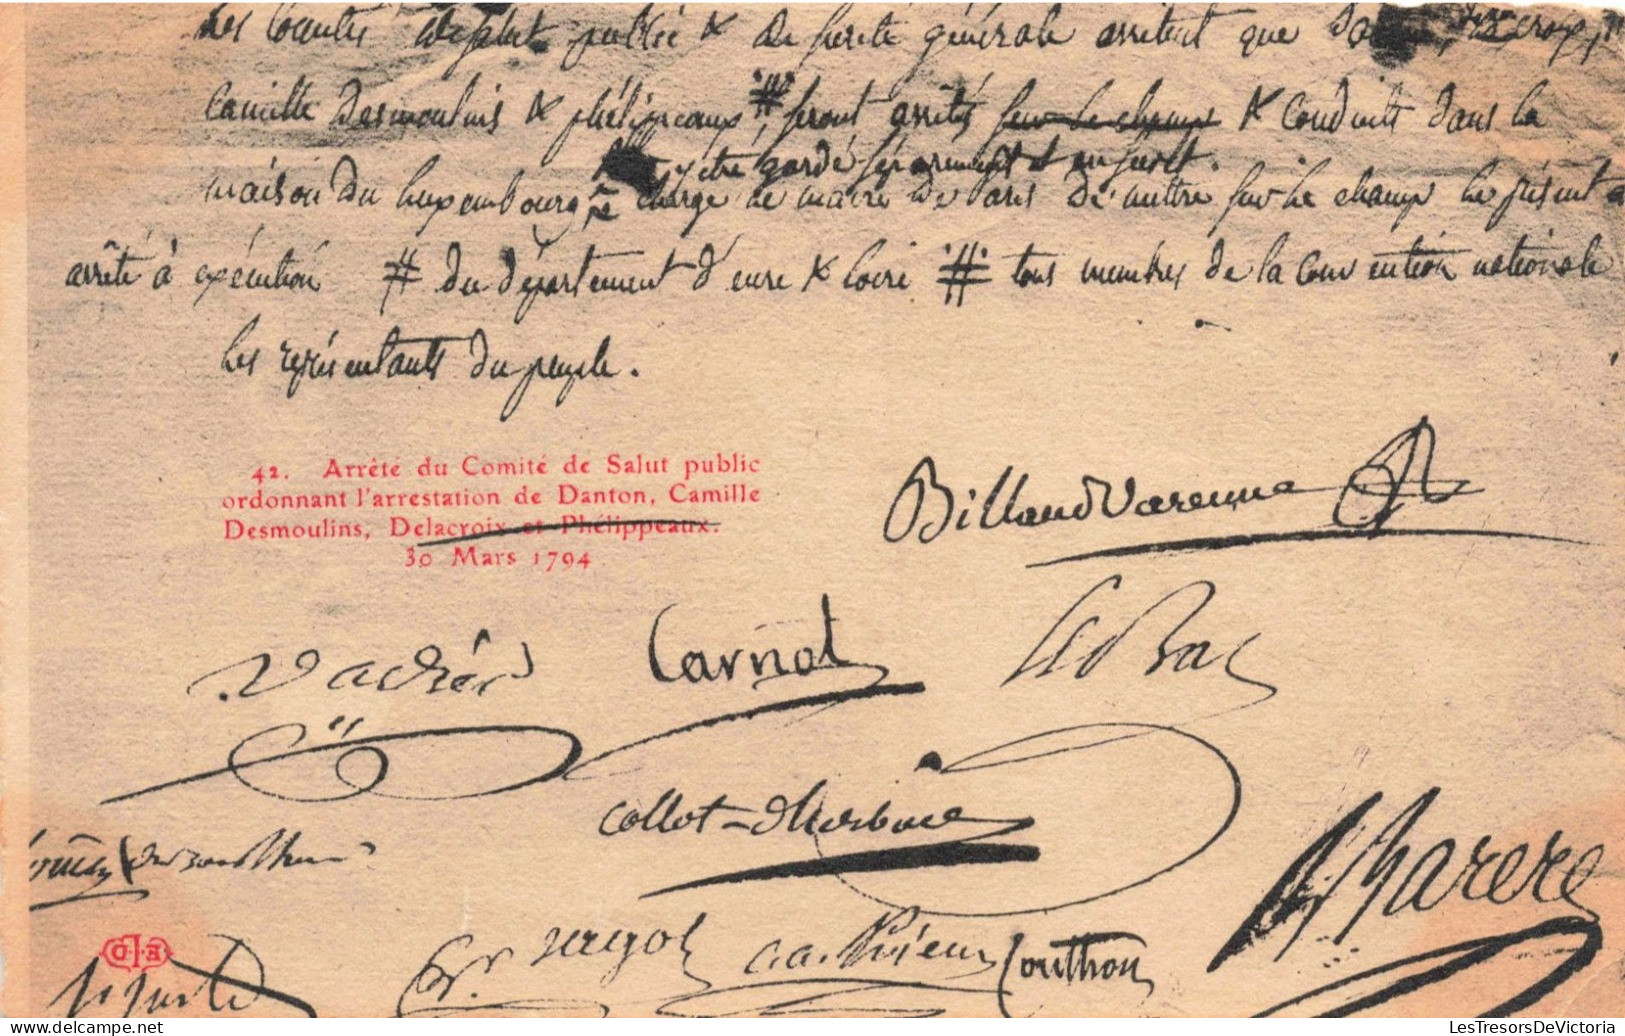 Les Comités de salut public & de sureté générale arrêtent que Danton, Lacroix,
Camille Desmoulins & phélipeaux, # seront arrêtés sur le champs & Conduits dans la
y être gardé séparément et au secret.
maison du Luxembourg charge le maire de Paris de mettre sur le champ le présent
arrêté à exécution # du département d'eure & loire # tous membres de la Convention nationale
Les représentants du peuple.
42. Arrêté du Comité de Salut public
ordonnant l'arrestation de Danton, Camille
Desmoulins, Delacroix et Phélippeaux.
30 Mars 1794
Billaud Varenne
Vadier Carnot Le Bas
Collot-d'herbois
B Barere
Couthon
St Just
E.L.D
LesTresorsDeVictoria
LesTresorsDeVictoria